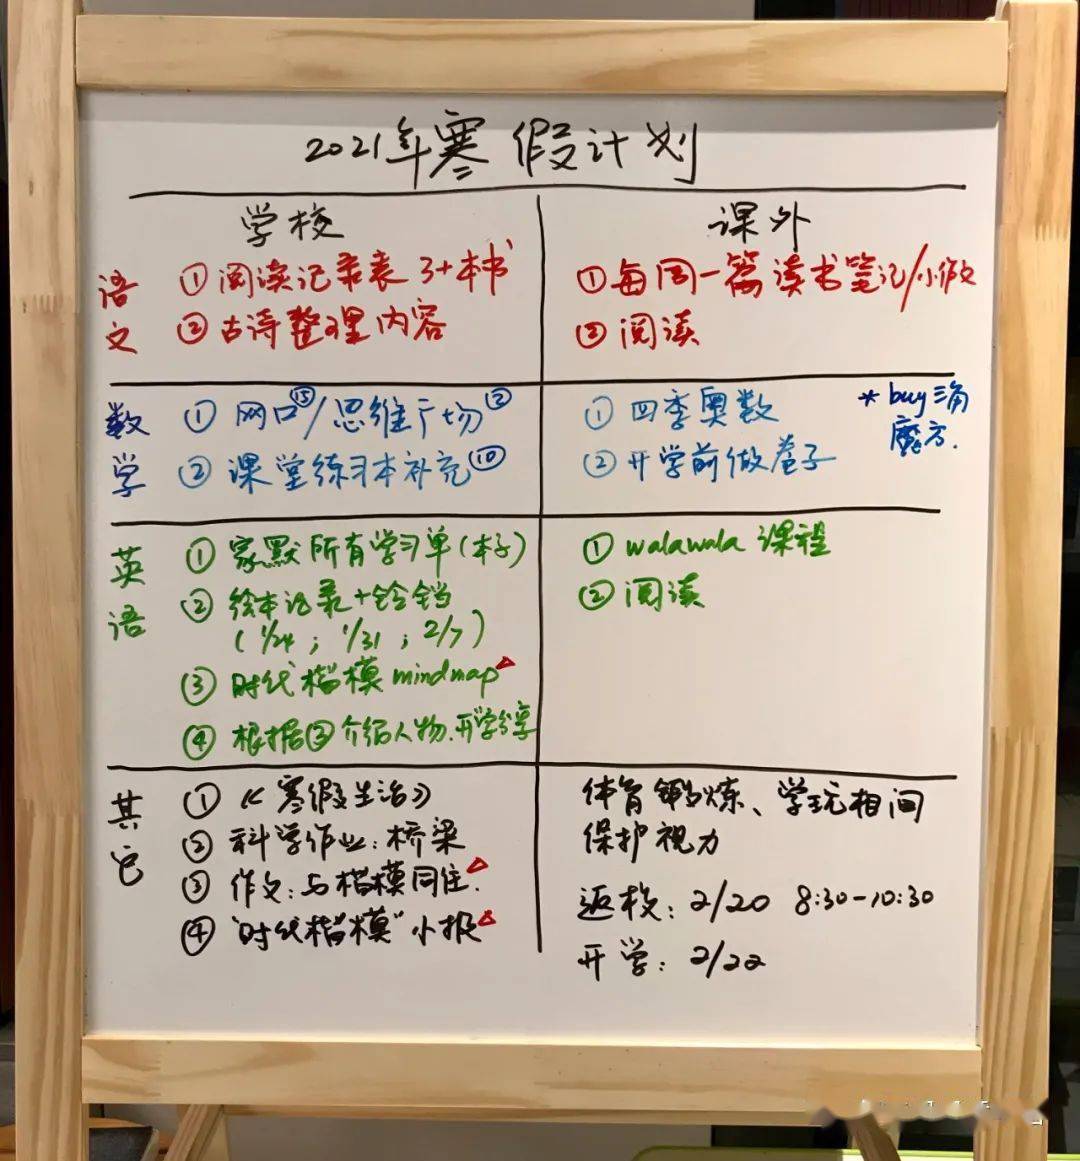 2021年寒假计划
学校
课外
语文
①阅读记录表 3+本书
②古诗整理内容
①每周一篇读书笔记/小作文
②阅读
数学
①网口⑮/思维广场②
②课堂练习本补充⑩
①四季奥数
②开学前做卷子
*buy三角
魔方.
英语
①家默所有学习单(本子)
②绘本记录+铃铛
(1/24;1/31;2/7)
③时代楷模mindmap△
④根据③介绍人物.开学分享
①walawala 课程
②阅读
其它
①《寒假生活》
②科学作业:桥梁
③作文:与楷模同住.△
④"时代楷模"小报△
体育锻炼、学玩相间
保护视力
返校:2/20 8:30-10:30
开学:2/22